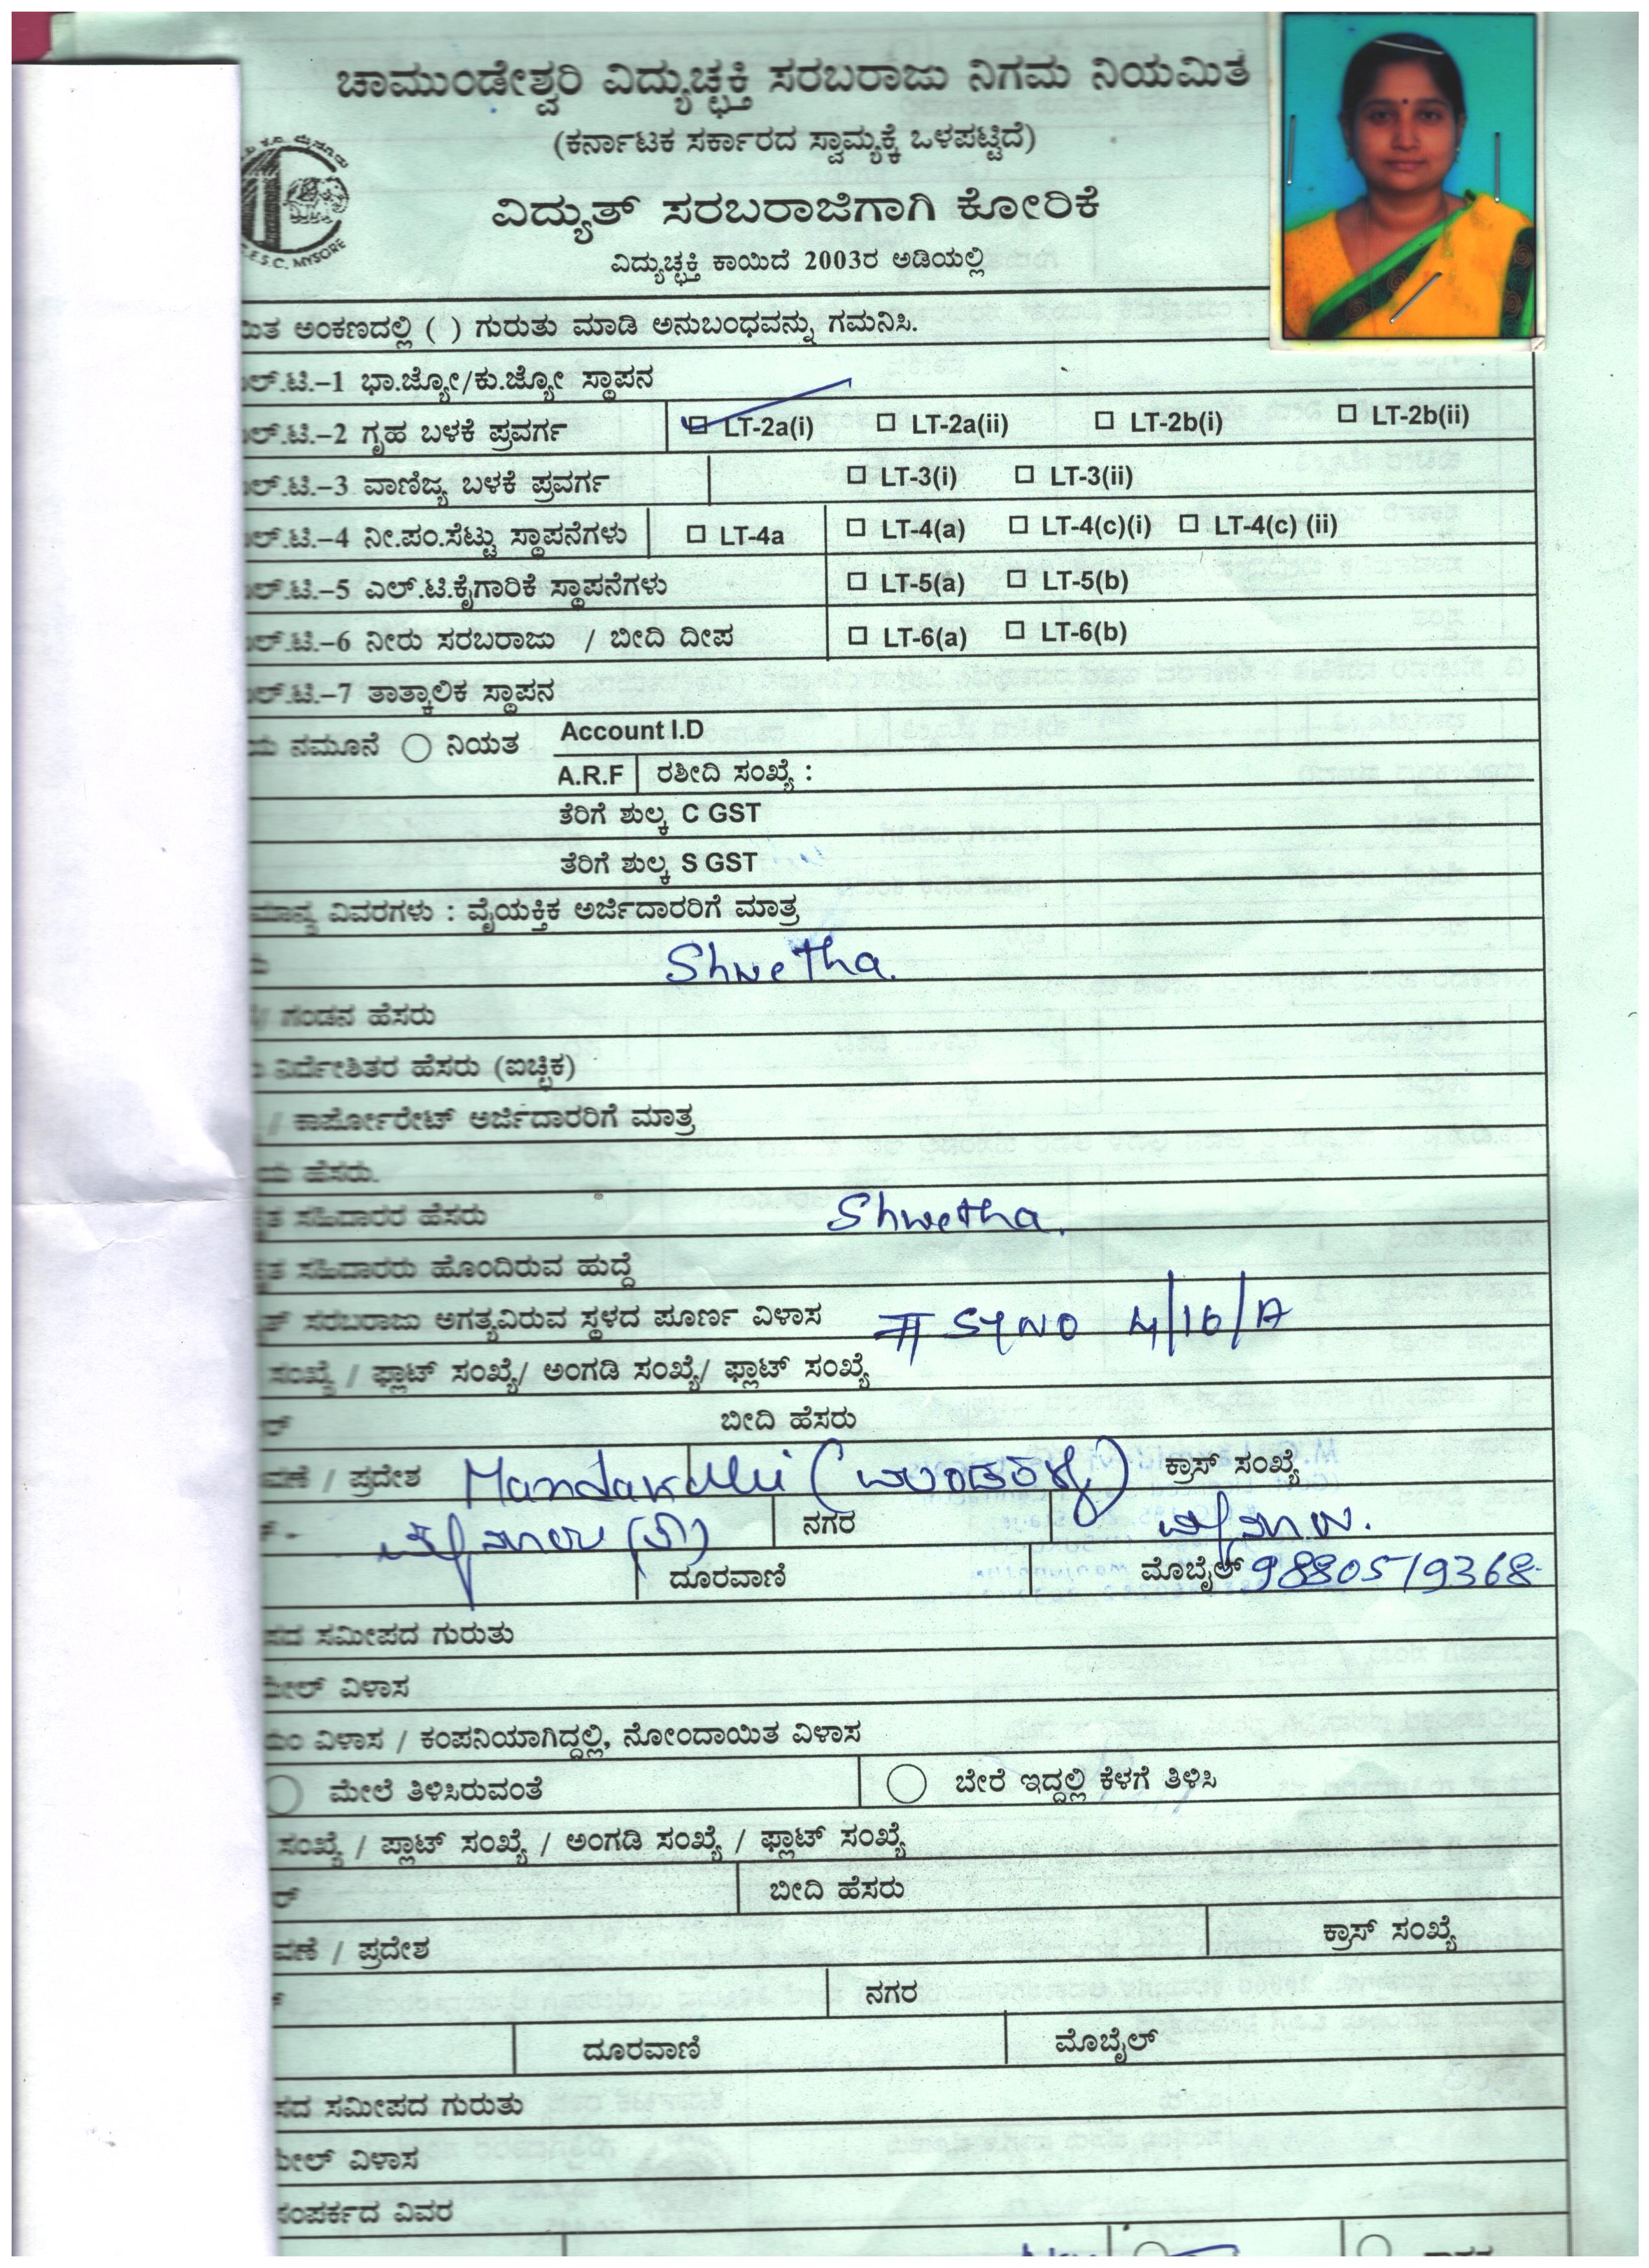 ಚಾಮುಂಡೇಶ್ವರಿ ವಿದ್ಯುಚ್ಛಕ್ತಿ ಸರಬರಾಜು ನಿಗಮ ನಿಯಮಿತ
(ಕರ್ನಾಟಕ ಸರ್ಕಾರದ ಸ್ವಾಮ್ಯಕ್ಕೆ ಒಳಪಟ್ಟಿದೆ)
ವಿದ್ಯುತ್ ಸರಬರಾಜಿಗಾಗಿ ಕೋರಿಕೆ
ವಿದ್ಯುಚ್ಛಕ್ತಿ ಕಾಯಿದೆ 2003ರ ಅಡಿಯಲ್ಲಿ
.E.S.C. MYSORE
ಅಂಕಣದಲ್ಲಿ ( ) ಗುರುತು ಮಾಡಿ ಅನುಬಂಧವನ್ನು ಗಮನಿಸಿ.
ಲ್.ಟಿ.–1 ಭಾ.ಜ್ಯೋ/ಕು.ಜ್ಯೋ ಸ್ಥಾಪನ
ಲ್.ಟಿ.–2 ಗೃಹ ಬಳಕೆ ಪ್ರವರ್ಗ LT-2a(i) LT-2a(ii) LT-2b(i) LT-2b(ii)
ಲ್.ಟಿ.–3 ವಾಣಿಜ್ಯ ಬಳಕೆ ಪ್ರವರ್ಗ LT-3(i) LT-3(ii)
ಲ್.ಟಿ.–4 ನೀ.ಪಂ.ಸೆಟ್ಟು ಸ್ಥಾಪನೆಗಳು LT-4a LT-4(a) LT-4(c)(i) LT-4(c) (ii)
ಲ್.ಟಿ.–5 ಎಲ್.ಟಿ.ಕೈಗಾರಿಕೆ ಸ್ಥಾಪನೆಗಳು LT-5(a) LT-5(b)
ಲ್.ಟಿ.–6 ನೀರು ಸರಬರಾಜು / ಬೀದಿ ದೀಪ LT-6(a) LT-6(b)
ಲ್.ಟಿ.–7 ತಾತ್ಕಾಲಿಕ ಸ್ಥಾಪನ
ನಮೂನೆ ನಿಯತ Account I.D
A.R.F ರಶೀದಿ ಸಂಖ್ಯೆ :
ತೆರಿಗೆ ಶುಲ್ಕ C GST
ತೆರಿಗೆ ಶುಲ್ಕ S GST
ಮಾನ್ಯ ವಿವರಗಳು : ವೈಯಕ್ತಿಕ ಅರ್ಜಿದಾರರಿಗೆ ಮಾತ್ರ
Shwetha.
/ ಗಂಡನ ಹೆಸರು
ನಿರ್ದೇಶಿತರ ಹೆಸರು (ಐಚ್ಛಿಕ)
/ ಕಾರ್ಪೋರೇಟ್ ಅರ್ಜಿದಾರರಿಗೆ ಮಾತ್ರ
ಯ ಹೆಸರು.
ತ ಸಹಿದಾರರ ಹೆಸರು Shwetha.
ತ ಸಹಿದಾರರು ಹೊಂದಿರುವ ಹುದ್ದೆ
ತ್ ಸರಬರಾಜು ಅಗತ್ಯವಿರುವ ಸ್ಥಳದ ಪೂರ್ಣ ವಿಳಾಸ # SYNO 4/16/A
ಸಂಖ್ಯೆ / ಫ್ಲಾಟ್ ಸಂಖ್ಯೆ/ ಅಂಗಡಿ ಸಂಖ್ಯೆ/ ಫ್ಲಾಟ್ ಸಂಖ್ಯೆ
ರ್ ಬೀದಿ ಹೆಸರು
ವಣೆ / ಪ್ರದೇಶ Mandakalli (ಮಂಡಕಳ್ಳಿ) ಕ್ರಾಸ್ ಸಂಖ್ಯೆ
ಮೈಸೂರು (ತಾ) ನಗರ ಮೈಸೂರು.
ದೂರವಾಣಿ ಮೊಬೈಲ್ 9880519368
ಸದ ಸಮೀಪದ ಗುರುತು
ಮೇಲ್ ವಿಳಾಸ
ವಿಳಾಸ / ಕಂಪನಿಯಾಗಿದ್ದಲ್ಲಿ, ನೋಂದಾಯಿತ ವಿಳಾಸ
ಮೇಲೆ ತಿಳಿಸಿರುವಂತೆ ಬೇರೆ ಇದ್ದಲ್ಲಿ ಕೆಳಗೆ ತಿಳಿಸಿ
ಸಂಖ್ಯೆ / ಪ್ಲಾಟ್ ಸಂಖ್ಯೆ / ಅಂಗಡಿ ಸಂಖ್ಯೆ / ಫ್ಲಾಟ್ ಸಂಖ್ಯೆ
ರ್ ಬೀದಿ ಹೆಸರು
ವಣೆ / ಪ್ರದೇಶ ಕ್ರಾಸ್ ಸಂಖ್ಯೆ
ನಗರ
ದೂರವಾಣಿ ಮೊಬೈಲ್
ಸದ ಸಮೀಪದ ಗುರುತು
ಮೇಲ್ ವಿಳಾಸ
ಸಂಪರ್ಕದ ವಿವರ